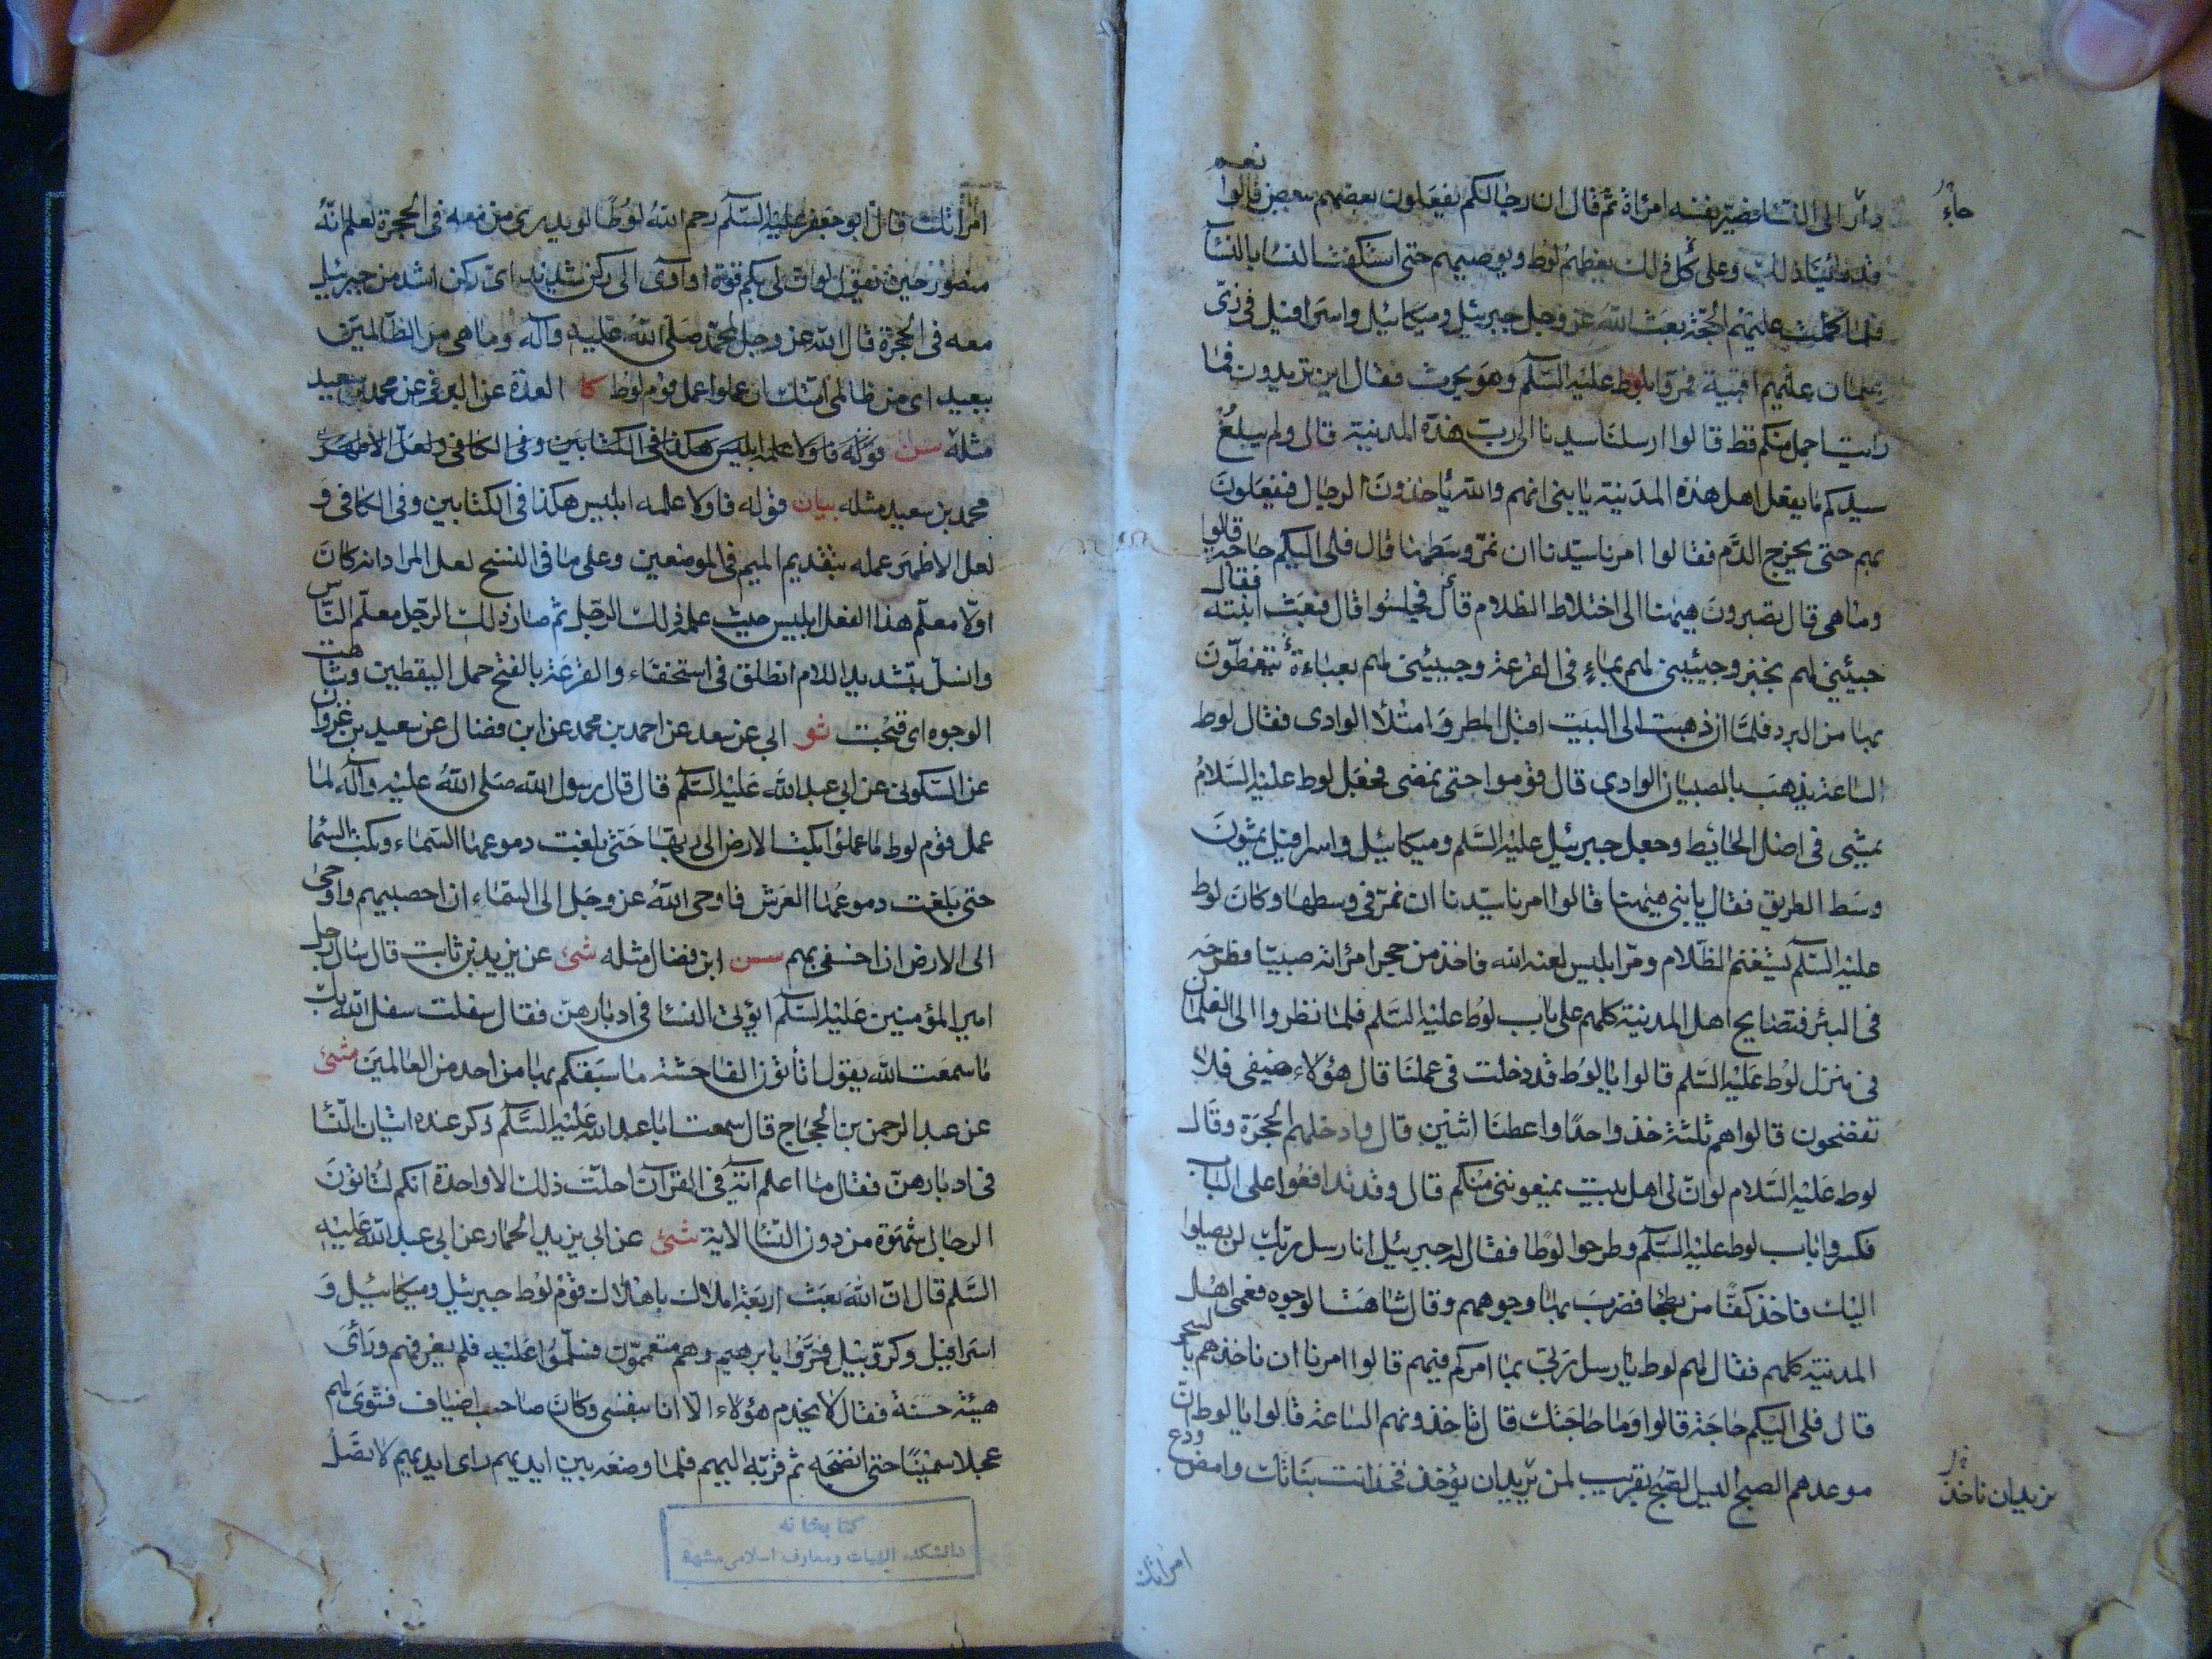 جاءَ
دار الى النسا فصيّر نفسه امرأة ثم قال ان رجالكم يفعلون بعضهم ببعض قالوا نعم
قد رأينا ذلك وعلى كل ذلك يعظهم لوط ويوصيهم حتى استكفت النسا بالنسا
فلما كملت عليهم الحجّة بعث الله عز وجل جبرئيل وميكائيل واسرافيل فى زىّ
غلمان عليهم اقبية فمروا بلوط عليه السّلم وهو يحرث فقال اين تريدون فما
رايت اجمل منكم قط قالوا ارسلنا سيدنا الى رب هذه المدينة قال ولم يبلغ
سيدكم ما يفعل اهل هذه المدينة يا بنى انهم والله يأخذون الرجال فيفعلون
بهم حتى يخرج الدّم فقالوا امرنا سيّدنا ان نمرّ وسطها قال فلى اليكم حاجة قالوا
وما هى قال تصبرون هيهنا الى اختلاط الظلام قال فجلسوا قال فبعث ابنته فقال
جيئينى لهم بخبز وجيئينى لهم بماء فى القرعة وجيئينى لهم بعباءة يتغطّون
بها من البرد فلمّا ان ذهبت الى البيت اقبل المطر وامتلأ الوادى فقال لوط
الساعة يذهب بالصبيان الوادى قال قوموا حتى نمضى فجعل لوط عليه السّلامُ
يمشى فى اصل الحايط وجعل جبرئيل عليه السّلم وميكائيل واسرافيل يمشون
وسط الطريق فقال يا بنى هيهنا قالوا امرنا سيّدنا ان نمرّ فى وسطها وكان لوط
عليه السّلم يستغنم الظّلام ومرّ ابليس لعنه الله فاخذ من حجر امرأته صبيّا فطرحه
فى البئر فتصايح اهل المدينة كلهم على باب لوط عليه السّلم فلما نظروا الى الغلمان
فى منزل لوط عليه السّلم قالوا يا لوط قد دخلت فى عملنا قال هؤلاء ضيفى فلا
تفضحون قالوا هم ثلثة خذ واحدًا واعطنا اثنين قال وادخلهم الحجرة وقال
لوط عليه السّلام لو انّ لى اهل بيت يمنعوننى منكم قال وقد تدافعوا على الباب
فكسروا باب لوط عليه السّلم وطرحوا لوطا فقال له جبرئيل انا رسل ربّك لن يصلوا
اليك فاخذ كفّا من بطحا فضرب بها وجوههم وقال شاهت الوجوه فعمى اهل
المدينة كلهم فقال لهم لوط يا رسل ربّى بما امركم فيهم قالوا امرنا ان ناخذهم بالسحر
قال فلى اليكم حاجة قالوا وما حاجتك قال تاخذونهم الساعة قالوا يا لوط انّ
موعدهم الصبح اليس الصّبح بقريب لمن يريد ان يؤخذ فخذ انت بناتك وامض ودع
نريد ان ناخذ
امراتك
امراتك قال ابو جعفر عليه السّلم رحم الله لوطًا لو يدرى من معه فى الحجرة لعلم انّه
منصور حيث يقول لو ان لى بكم قوة او آوى الى ركن شديد اىّ ركن اشد من جبرئيل
معه فى الحجرة قال الله عز وجل لمحمّد صلّى الله عليه وآله وما هى من الظّالمين
ببعيد اى من ظالمى امّتك ان عملوا عمل قوم لوط كا العدّة عن البرقى عن محمد بن سعيد
مثله سن قوله فاولا علمه ابليس هكذا فى الكتابين وفى الكافى ولعل الاظهر
محمد بن سعيد مثله بيان قوله فاولا علمه ابليس هكذا فى الكتابين وفى الكافى و
لعل الاظهر عمله بتقديم الميم فى الموضعين وعلى ما فى النسخ لعل المراد انه كان
اولا معلّم هذا الفعل ابليس حيث علمه ذلك الرّجل ثم صار ذلك الرّجل معلّم النّاس
وانسلّ بتشديد اللام انطلق فى استخفاء والقرعة بالفتح حمل اليقطين وشاهت
الوجوه اى قبحت ثو ابى عن سعد عن احمد بن محمد عن ابن فضال عن سعيد بن غزوان
عن السّكونى عن ابى عبد الله عليه السّلم قال قال رسول الله صلى الله عليه وآله لما
عمل قوم لوط ما عملوا بكت الارض الى ربها حتى بلغت دموعها السّماء وبكت السّما
حتى بلغت دموعها العرش فاوحى الله عز وجل الى السّماء ان احصبيهم واوحى
الى الارض ان اخسفى بهم سن ابن فضال مثله شى عن يزيد بن ثابت قال سال رجل
امير المؤمنين عليه السّلم ايؤتى النسا فى ادبارهن فقال سفلت سفل الله بك
ما سمعت الله يقول اتأتون الفاحشة ما سبقكم بها من احد من العالمين شى
عن عبد الرحمن بن الحجاج قال سمعت ابا عبد الله عليه السّلم ذكر عنده اتيان النّسا
فى ادبارهنّ فقال ما اعلم آية فى القرآن احلّت ذلك الا واحدة انكم لتاتون
الرجال شهوة من دون النّسا الاية شى عن ابى يزيد الحمار عن ابى عبد الله عليه
السّلم قال انّ الله بعث اربعة املاك باهلاك قوم لوط جبرئيل وميكائيل و
اسرافيل وكرّوبيل فمرّوا بابرهيم وهم متعممّون فسلّموا عليه فلم يعرفهم ورأى
هيئة حسنة فقال لا يخدم هؤلاء الّا انا بنفسى وكان صاحب اضياف فشوى لهم
عجلا سمينًا حتى انضجه ثم قرّبه اليهم فلما وضعه بين ايديهم راى ايديهم لا تصل
كتابخانه
دانشکده الهیات ومعارف اسلامی مشهد